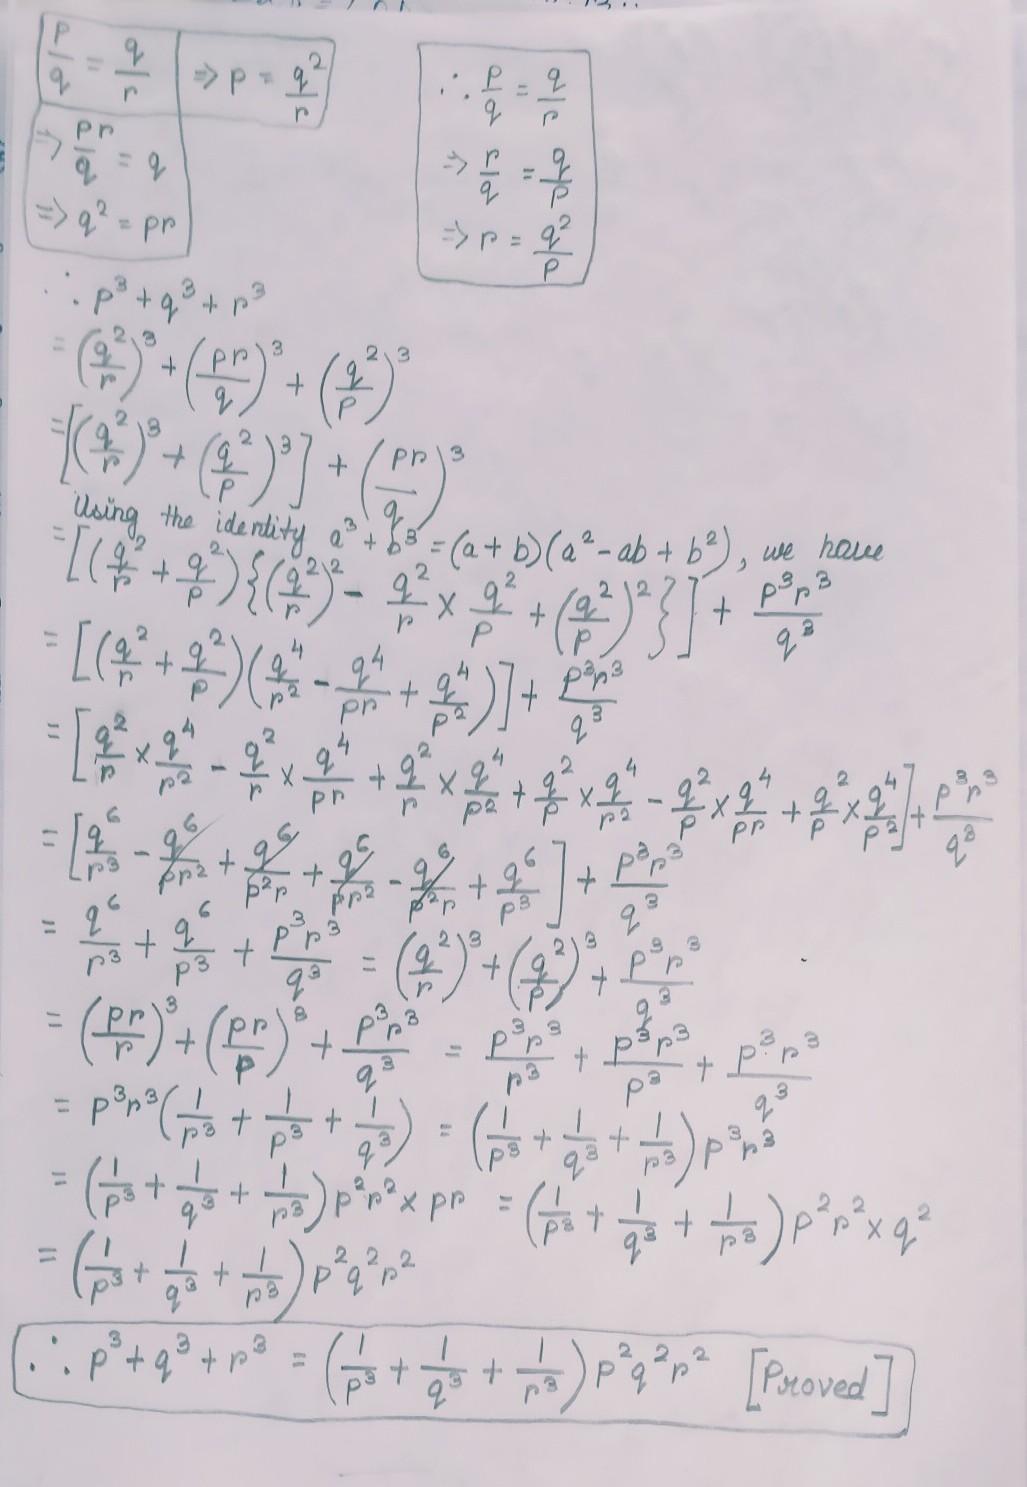 p/q = q/r ⇒ p = q²/r
⇒ pr/q = q
⇒ q² = pr
∴ p/q = q/r
⇒ r/q = q/p
⇒ r = q²/p
∴ p³ + q³ + r³
= (q²/r)³ + (pr/q)³ + (q²/p)³
= [(q²/r)³ + (q²/p)³] + (pr/q)³
Using the identity a³ + b³ = (a + b)(a² - ab + b²), we have
= [(q²/r + q²/p){(q²/r)² - q²/r × q²/p + (q²/p)²}] + p³r³/q³
= [(q²/r + q²/p)(q⁴/r² - q⁴/pr + q⁴/p²)] + p³r³/q³
= [q²/r × q⁴/r² - q²/r × q⁴/pr + q²/r × q⁴/p² + q²/p × q⁴/r² - q²/p × q⁴/pr + q²/p × q⁴/p²] + p³r³/q³
= [q⁶/r³ - q⁶/pr² + q⁶/p²r + q⁶/pr² - q⁶/p²r + q⁶/p³] + p³r³/q³
= q⁶/r³ + q⁶/p³ + p³r³/q³ = (q²/r)³ + (q²/p)³ + p³r³/q³
= (pr/r)³ + (pr/p)³ + p³r³/q³ = p³r³/r³ + p³r³/p³ + p³r³/q³
= p³r³(1/r³ + 1/p³ + 1/q³) = (1/p³ + 1/q³ + 1/r³) p³r³
= (1/p³ + 1/q³ + 1/r³) p²r² × pr = (1/p³ + 1/q³ + 1/r³) p²r² × q²
= (1/p³ + 1/q³ + 1/r³) p²q²r²
∴ p³ + q³ + r³ = (1/p³ + 1/q³ + 1/r³) p²q²r² [Proved]